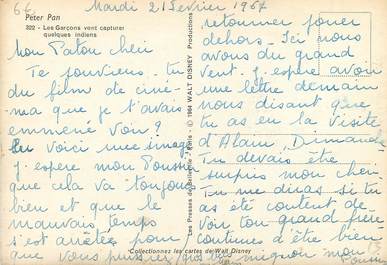 66
Mardi 21 Février 1967
Peter Pan
322 - Les Garçons vont capturer
quelques indiens
Mon Patou cheri
Te souviens-tu
du film de ciné-
ma que je t'avais
emmené voir?
En voici une image
j'espere mon Poussin
que cela va toujours
bien et que le
mauvais temps
s'est arrêté pour
que vous puissiez
retourner jouer
dehors. Ici nous
avons du grand
vent. J'espere avoir
une lettre demain
nous disant que
tu as eu la visite
d'Alain Dimanche
Tu devais être
surpris mon cheri
Tu me diras si tu
as été content de
voir ton grand frère
continue d'être bien
mignon mon
Poussin
Les Presses de - Paris - © 1964 WALT DISNEY Productions
Collectionnez les cartes de Walt Disney